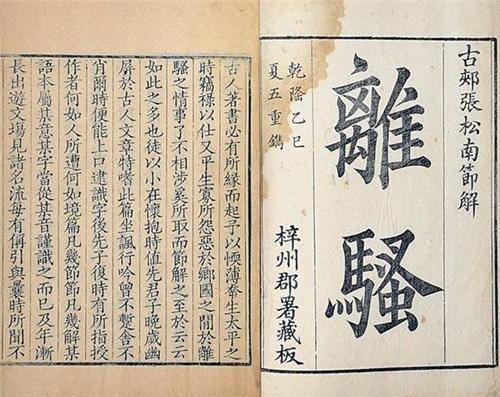 古郟張松南節解
離騷
乾隆乙巳
夏五重鐫
梓州郡署藏板
古人著書必有所緣而起予以慵薄幸生太平之
時竊祿以仕又平生寡所怨惡於鄉國之閒於離
騷之情事了不相涉奚所取而節解之至於云云
如此之多也徒以小在懷抱時值先君子晚歲幽
屏於古人文章特嗜此篇坐諷行吟曾不蹔舍不
肖爾時便能上口逮識字後先子復時有所指授
作者何如人所遭何如境篇凡幾節節凡幾解某
語本屬某意某字當從某音謹識之而已及年漸
長出遊文場見諸名流每有偁引與曩時所聞不